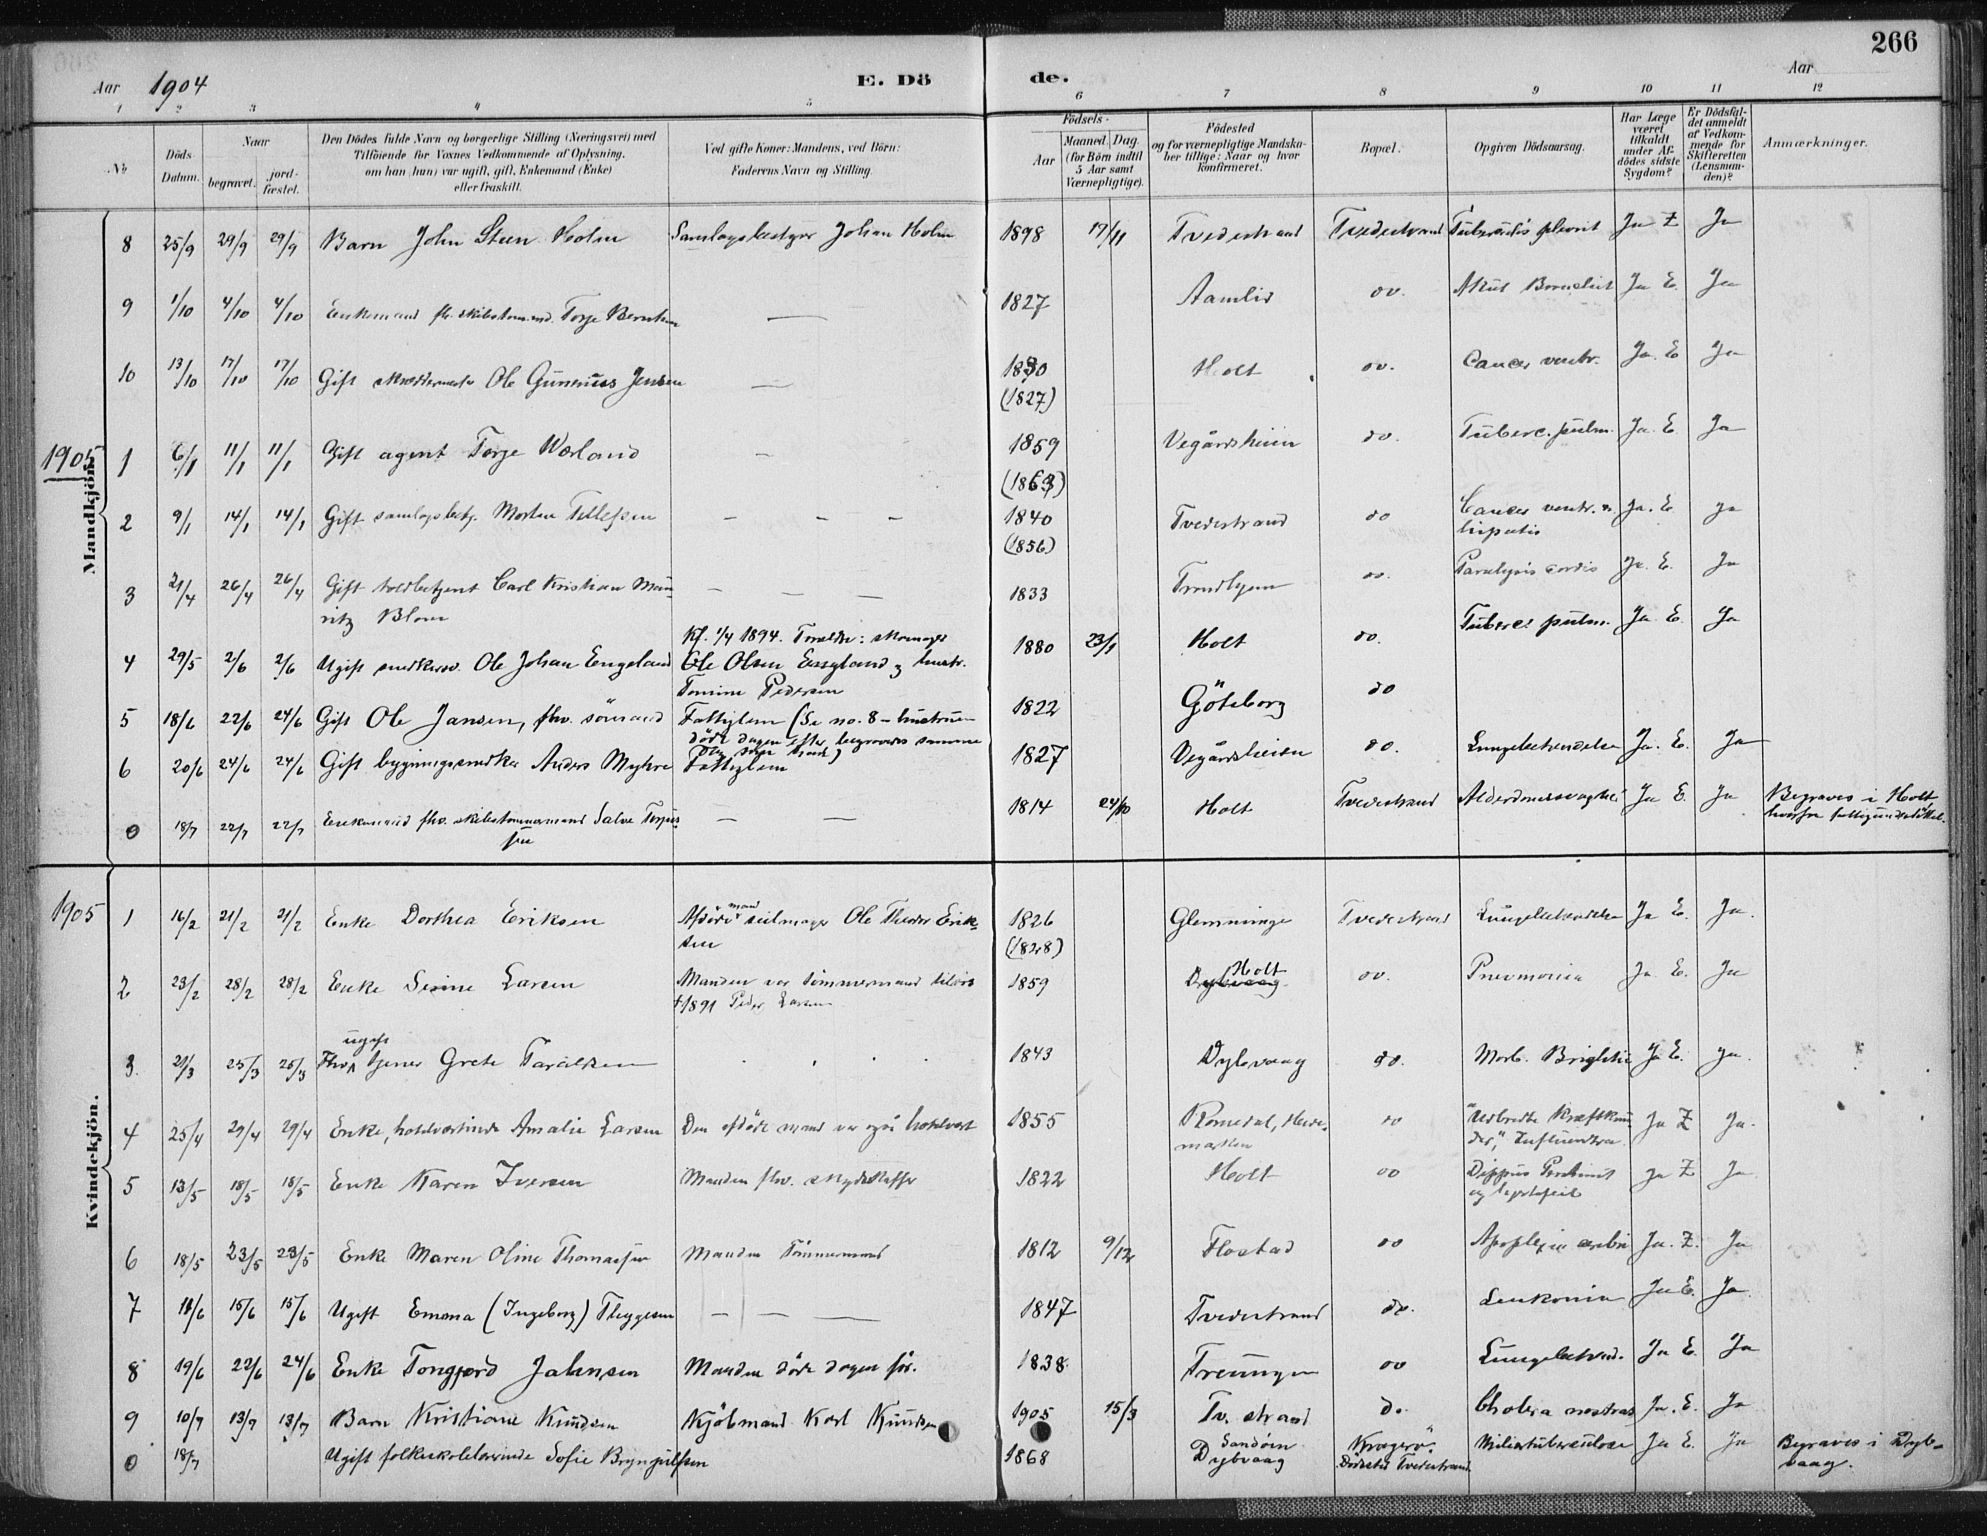 266
Aar 1904 E. Dö de. Aar
1 2 3 4 5 6 7 8 9 10 11 12
No Döds Datum. Naar begravet. jord-fæstet. Den Dödes fulde Navn og borgerlige Stilling (Næringsvei) med Tilföiende for Voxnes Vedkommende af Oplysning, om han (hun) var ugift, gift, Enkemand (Enke) eller fraskilt. Ved gifte Koner: Mandens, ved Börn: Faderens Navn og Stilling. Födsels- Aar Maaned. Dag. (for Börn indtil 5 Aar samt Værnepligtige). Födested og for værnepligtige Mandskaber tillige: Naar og hvor konfirmeret. Bopæl. Opgiven Dödsaarsag. Har Læge været tilkaldt under Afdödes sidste Sygdom? Er Dödsfaldet anmeldt af Vedkommende for Skifteretten (Lensmanden)? Anmærkninger.
Mandkjön.
8 25/9 29/9 29/9 Barn John Steen Holm Samlagsbestyrer Johan Holm 1898 17/11 Tvedestrand Tvedestrand pleurit Ja Z Ja
9 1/10 4/10 4/10 Enkemand fhv. skibstømmermd. Torje Berntsen — 1827 Aamlid do. Akut Ja E. Ja
10 13/10 17/10 17/10 Gift skræddermester Ole Gunerius Jensen — 1830 (1827) Holt do. Cancer ventr. Ja. E Ja
1905
1 6/1 11/1 11/1 Gift agent Torje Worland - 1859 (1863) Vegårdsheien do. Tuberc. pulm. Ja. E. Ja
2 9/1 14/1 14/1 Gift samlagsbetj. Morten Tellefsen - - - 1840 (1856) Tvedestrand do Cancer ventr. & hepatis Ja. E. Ja
3 21/4 26/4 26/4 Gift toldbetjent Carl Kristian Mauritz Blom - - - 1833 Trondhjem do. Paralysis cordis Ja. E. Ja
4 29/5 2/6 2/6 Ugift snedkersv. Ole Johan Eengeland Kf. 1/4 1894. Forældre: skomager Ole Olsen Eengeland og hustr. Tomine Pedersen 1880 23/1 Holt do. Tuberc. pulm. Ja E. Ja
5 18/6 22/6 24/6 Gift Ole Jansen, fhv. sömand Fattiglem (Se no. 8 - hustruen döde dagen efter, begravedes samme dag som hand) 1822 Göteborg do
6 20/6 24/6 24/6 Gift bygningssnedker Anders Myhre Fattiglem 1827 Vegårdsheien do. Lungebetændelse Ja. E. Ja
0 18/7 22/7 22/7 Enkemand fhv. skibstömmermand Salve Torjussen — — 1814 24/10 Holt Tvedestrand Alderdomssvaghed Ja E. Ja Begraves i Holt hvorfra fattigunderstöttet.
Kvindekjön.
1905
1 16/2 21/2 21/2 Enke Dorthea Eriksen Afdöde mand seilmager Ole Theodor Eriksen 1826 (1828) Glemminge Tvedestrand Lungebetændelse Ja E. Ja.
2 23/2 28/2 28/2 Enke Sesine Larsen Manden var tömmermand tilsøs †1891 Peder Larsen 1859 Dybvaag Holt do. Pneumonia Ja E. Ja
3. 21/3 25/3 25/3 Fhv. ugift tjener Grete Taraldsen 1843 Dybvaag do. Morb. Brightii Ja E. Ja.
4 25/4 29/4 29/4 Enke, hotelværtinde Amalie Larsen Den afdöde mand var også hotelvært 1855 Romedal, Hedemarken do "Udbredte Kræftknuder", Influendza Ja Z Ja.
5 13/5 18/5 18/5 Enke Karen Iversen Manden fhv. skydskaffer 1822 Holt do Ja Z Ja
6 18/5 23/5 23/5 Enke Maren Oline Thomassen Manden Tömmermand 1812 9/12 Flostad do Apoplexia cerebri Ja. Z. Ja
7 11/6 15/6 15/6 Ugift Emma (Ingeborg) Thyggesen — — 1847 Tvedestrand do. Leukæmia Ja E. Ja.
8 19/6 22/6 24/6 Enke Tongjerd Jahnsen Manden döde dagen för. 1838. Treungen do Lungebetænd. Ja E. Ja
9 10/7 13/7 13/7 Barn Kristiane Knudsen Kjöbmand Karl Knudsen 1905 15/3 Tv. strand do Cholera nostras Ja. E. Ja
0 18/7 Ugift folkeskolelærerinde Sofie Brynjulfsen 1868 Sandöen Dybvaag Kragerö. Dödssted Tvedestrand Miliærtuberculose Ja E. Ja Begraves i Dybvaag.